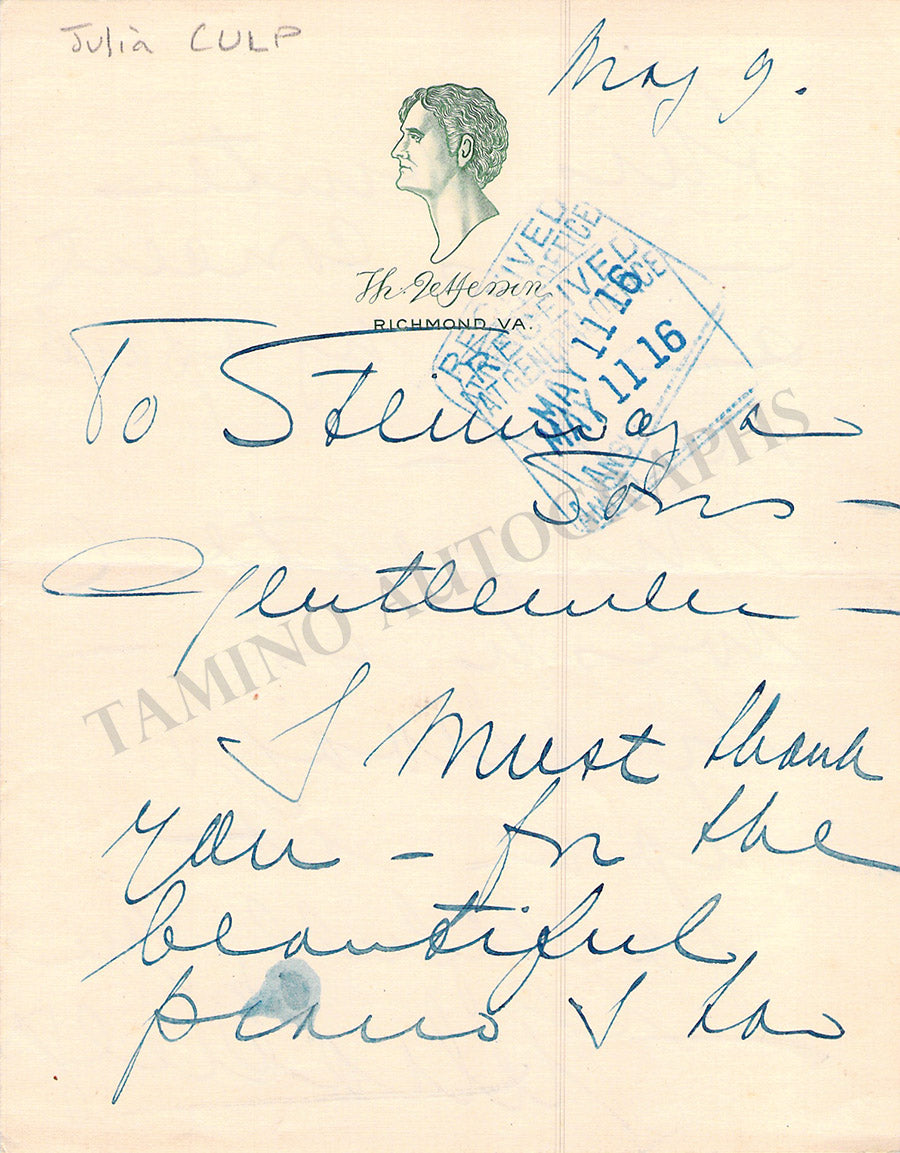 Julia CULP
May 9.
Th. Jefferson
RICHMOND, VA.
RECEIVED
MAY 11 16
RECEIVED
MAY 11 16
To Steinway a
Sons -
Gentlemen -
I must thank
you - for the
beautiful
piano I
TAMINO AUTOGRAPHS